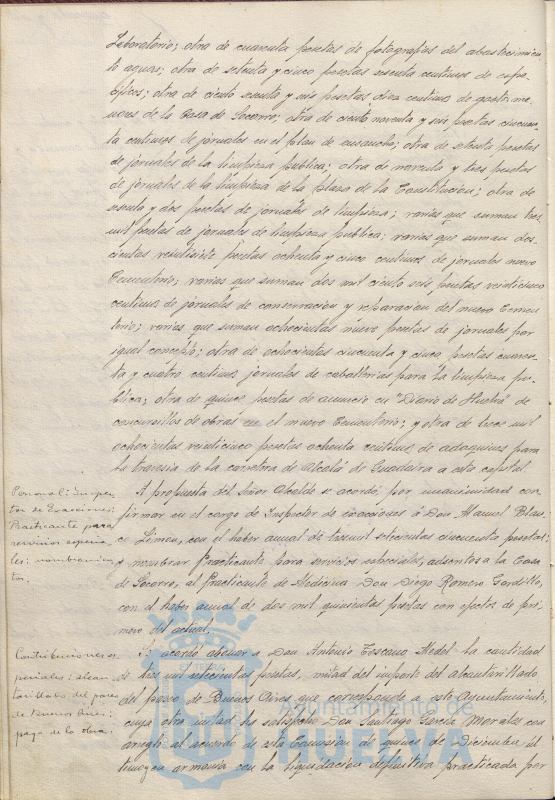 Laboratorio; otra de cuarenta pesetas de fotografías del abastecimien
to aguas; otra de setenta y cinco pesetas sesenta centimos de espe
cíficos; otra de ciento sesenta y seis pesetas diez centimos de gastos me
nores de la Casa de Socorro; otra de ciento noventa y seis pesetas cincuen
ta centimos de jornales en el plan de ensanche; otra de setenta pesetas
de jornales de la limpieza publica; otra de noventa y tres pesetas
de jornales de la limpieza de la plaza de la Constitucion; otra de
sesenta y dos pesetas de jornales de limpieza; varias que suman tres
mil pesetas de jornales de limpieza publica; varias que suman dos
cientas veintisiete pesetas ochenta y cinco centimos de jornales nuevo
Cementerio; varias que suman dos mil ciento seis pesetas veinticinco
centimos de jornales de conservacion y reparacion del nuevo Cemen
terio; varias que suman ochocientas nueve pesetas de jornales por
igual concepto; otra de ochocientas cincuenta y cinco pesetas cuaren
ta y cuatro centimos jornales de caballerias para la limpieza pu
blica; otra de quince pesetas de anuncio en "Diario de Huelva" de
concursillos de obras en el nuevo Cementerio; y otra de trece mil
ochocientas veinticinco pesetas ochenta centimos de adoquines para
la travesia de la carretera de Alcalá de Guadaira a esta capital.
Personal: Inspec
tor de Exacciones:
Practicante para
servicios especia
les: nombramien
tos.
A propuesta del Señor Alcalde se acordó por unanimidad con
firmar en el cargo de Inspector de exacciones á Don Manuel Blan
co Limon, con el haber anual de tres mil setecientas cincuenta pesetas;
y nombrar Practicante para servicios especiales, adscritos a la Casa
de Socorro, al Practicante de Medicina Don Diego Romero Gordillo,
con el haber anual de dos mil quinientas pesetas con efectos de pri
mero del actual.
Contribuciones es
peciales: alcan
tarillado del paseo
de Buenos Aires:
pago de la obra.
Se acordó abonar a Don Antonio Toscano Medel la cantidad
de tres mil setecientas pesetas, mitad del importe del alcantarillado
del paseo de Buenos Aires, que corresponde a este Ayuntamiento,
cuya otra mitad ha satisfecho Don Santiago García Morales con
arreglo al acuerdo de esta Comision de quince de Diciembre úl
timo y en armonia con la liquidacion definitiva practicada por
Ayuntamiento de
HUELVA